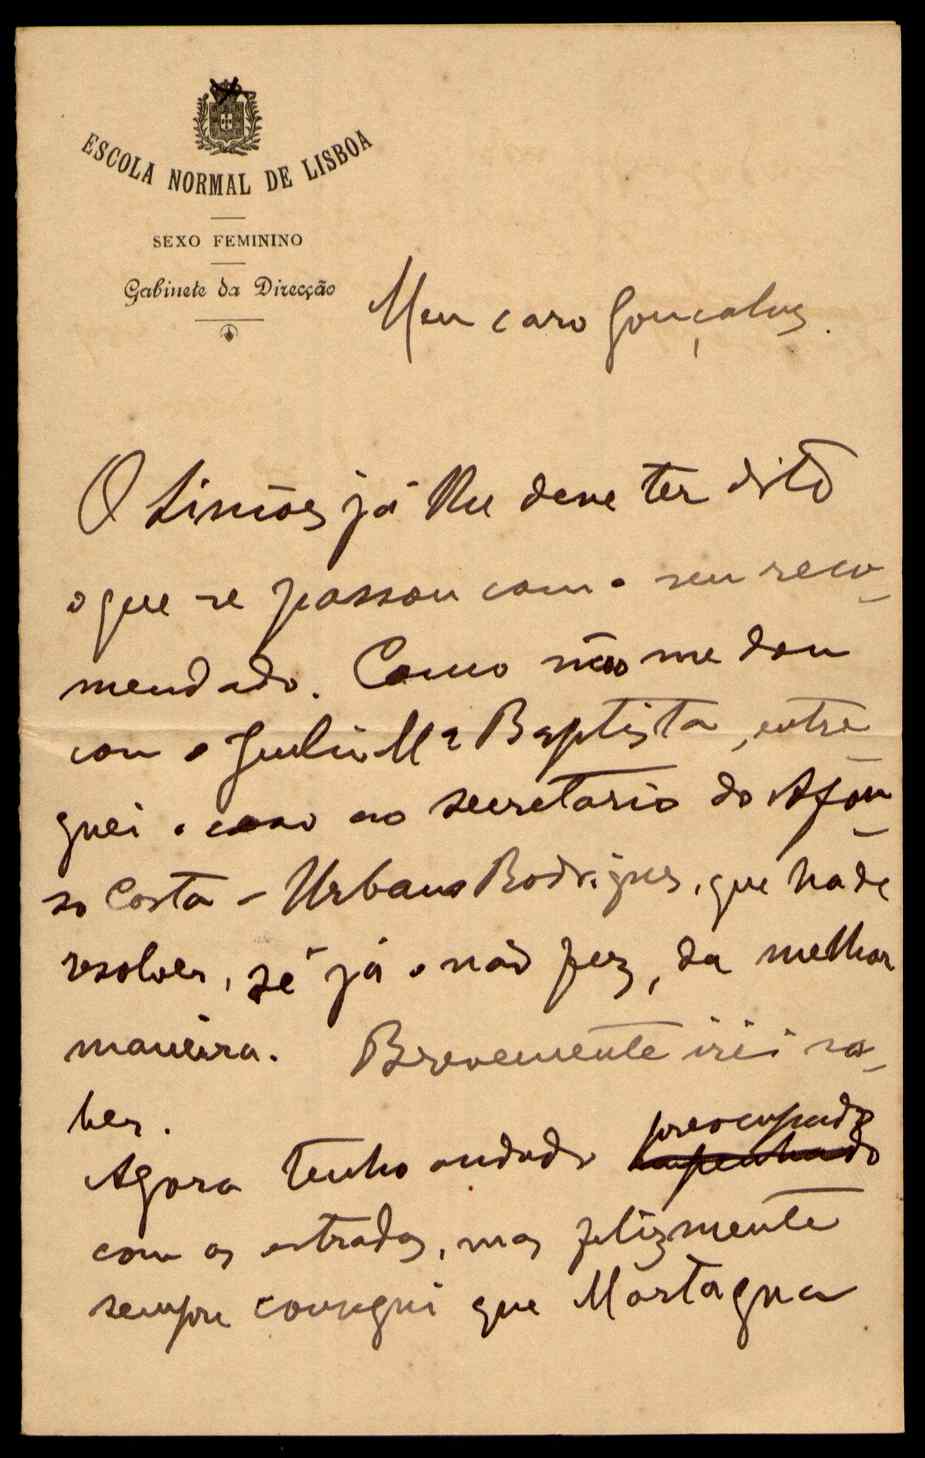 ESCOLA NORMAL DE LISBOA
SEXO FEMININO
Gabinete da Direcção
Meu caro Gonçalves.
O Simões já lhe deve ter dito
o que se passou com o seu reco-
mendado. Como não me dou
com o Julio Mª Baptista, entre
guei o caso ao secretario do Afon-
so Costa - Urbano Rodrigues, que hade
resolver, sé já o não fez, da melhor
maneira. Brevemente irei sa-
ber.
preocupado
Agora tenho andado empenhado
com as estradas, mas felizmente
sempre consegui que Mortagua